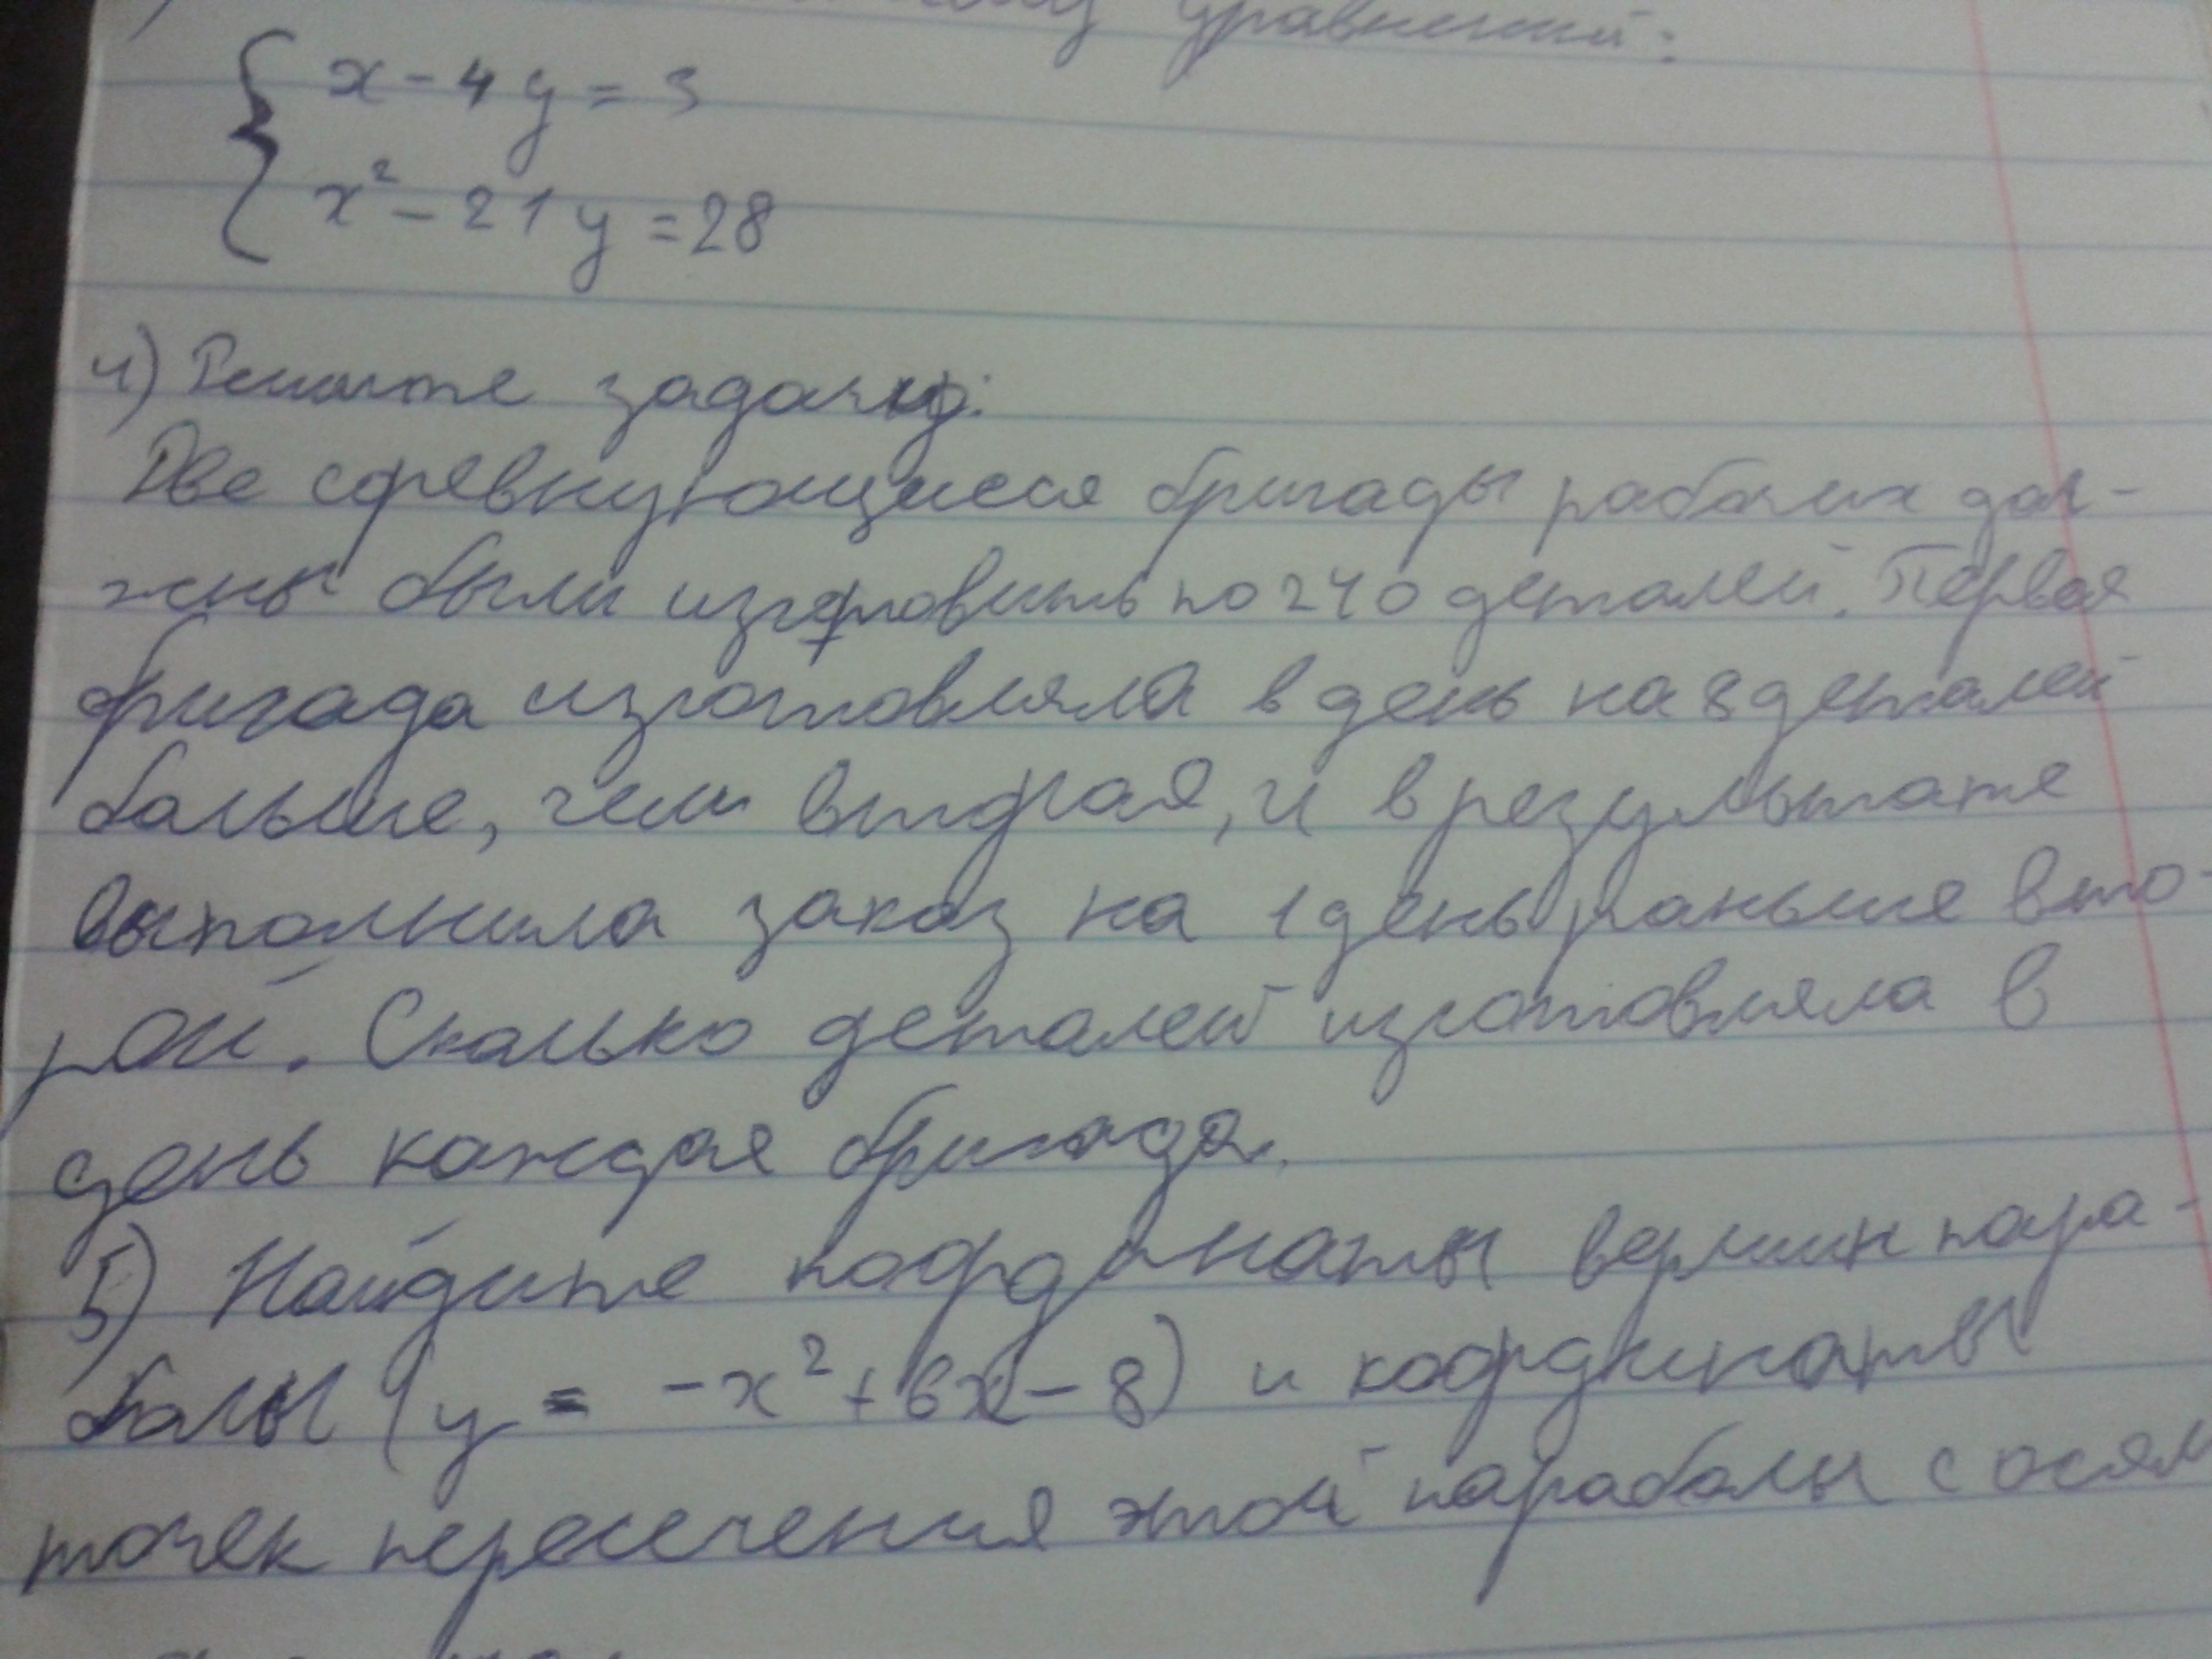 уравнений:
x - 4y = 3
x² - 21y = 28
4) Решите задачу:
Две соревнующиеся бригады рабочих дол-
жны были изготовить по 240 деталей. Первая
бригада изготовляла в день на 8 деталей
больше, чем вторая, и в результате
выполнила заказ на 1 день раньше вто-
рой. Сколько деталей изготовляла в
день каждая бригада.
5) Найдите координаты вершин пара-
болы (y = -x² + 6x - 8) и координаты
точек пересечения этой параболы с осям